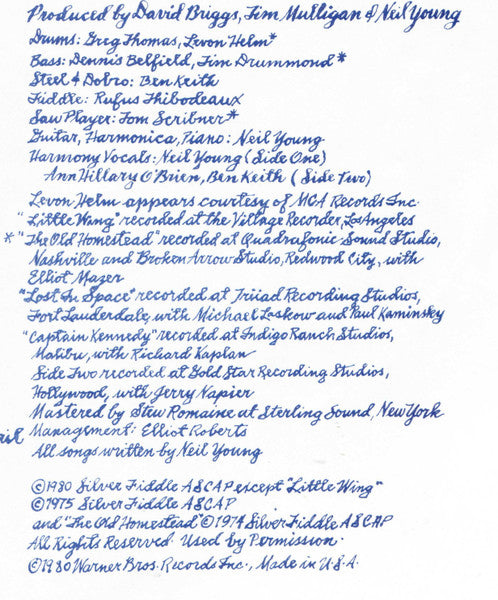 Produced by David Briggs, Tim Mulligan & Neil Young
Drums: Greg Thomas, Levon Helm*
Bass: Dennis Belfield, Tim Drummond*
Steel & Dobro: Ben Keith
Fiddle: Rufus Thibodeaux
Saw Player: Tom Scribner*
Guitar, Harmonica, Piano: Neil Young
Harmony Vocals: Neil Young (Side One)
Ann Hillary O'Brien, Ben Keith (Side Two)
Levon Helm appears courtesy of MCA Records Inc.
"Little Wing" recorded at the Village Recorder, Los Angeles
* "The Old Homestead" recorded at Quadrafonic Sound Studio,
Nashville and Broken Arrow Studio, Redwood City, with
Elliot Mazer
"Lost In Space" recorded at Triiad Recording Studios,
Fort Lauderdale, with Michael Laskow and Paul Kaminsky
"Captain Kennedy" recorded at Indigo Ranch Studios,
Malibu, with Richard Kaplan
Side Two recorded at Gold Star Recording Studios,
Hollywood, with Jerry Napier
Mastered by Stew Romaine at Sterling Sound, New York
Management: Elliot Roberts
All songs written by Neil Young
©1980 Silver Fiddle ASCAP except "Little Wing"
©1975 Silver Fiddle ASCAP
and "The Old Homestead" ©1974 Silver Fiddle ASCAP
All Rights Reserved. Used by Permission.
©1980 Warner Bros. Records Inc., Made in U.S.A.